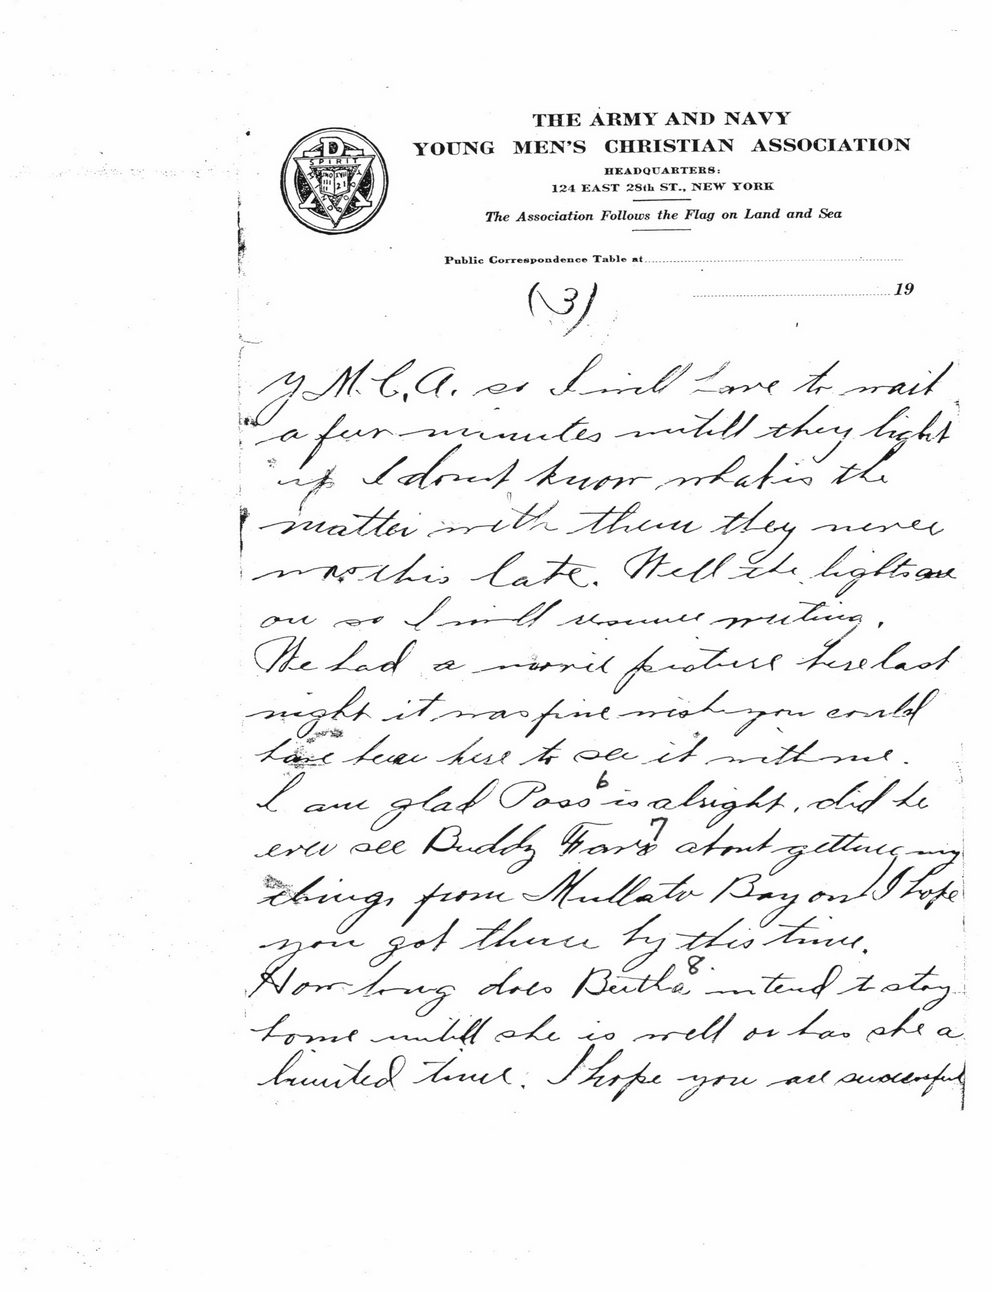 THE ARMY AND NAVY
YOUNG MEN'S CHRISTIAN ASSOCIATION
HEADQUARTERS:
124 EAST 28th ST., NEW YORK
The Association Follows the Flag on Land and Sea
Public Correspondence Table at
19
(3)
SPIRIT
Y.M.C.A. so I will have to wait
a few minutes untill they light
up I dont know what is the
matter with them they never
was this late. Well the lights are
on so I will resume writing.
We had a movie picture here last
night it was fine wish you could
have been here to see it with me.
I am glad Poss 6 is alright, did he
ever see Buddy 7 about getting my
things from Mullato Bayou I hope
you got them by this time.
How long does Bertha 8 intend to stay
home untill she is well or has she a
limited time. I hope you are successful